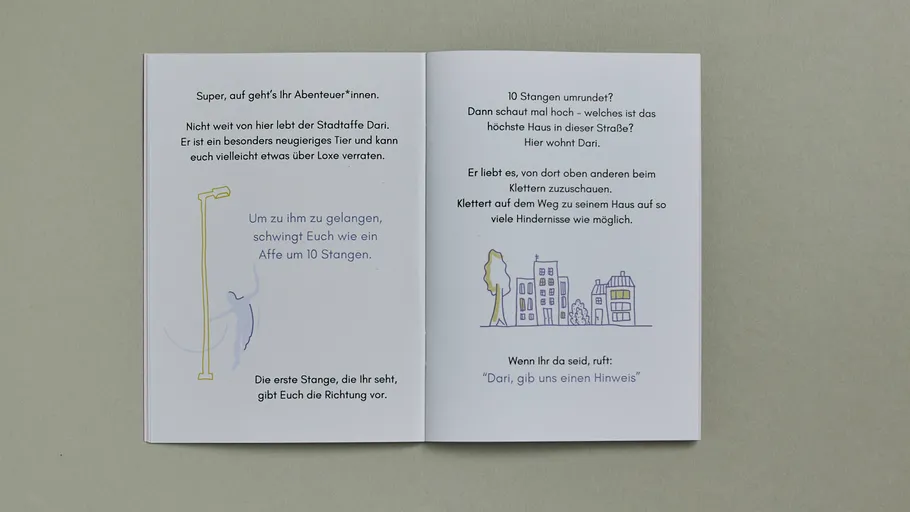 Super, auf geht's Ihr Abenteuer*innen.
Nicht weit von hier lebt der Stadtaffe Dari.
Er ist ein besonders neugieriges Tier und kann
euch vielleicht etwas über Loxe verraten.
Um zu ihm zu gelangen,
schwingt Euch wie ein
Affe um 10 Stangen.
Die erste Stange, die Ihr seht,
gibt Euch die Richtung vor.
10 Stangen umrundet?
Dann schaut mal hoch - welches ist das
höchste Haus in dieser Straße?
Hier wohnt Dari.
Er liebt es, von dort oben anderen beim
Klettern zuzuschauen.
Klettert auf dem Weg zu seinem Haus auf so
viele Hindernisse wie möglich.
Wenn Ihr da seid, ruft:
“Dari, gib uns einen Hinweis”